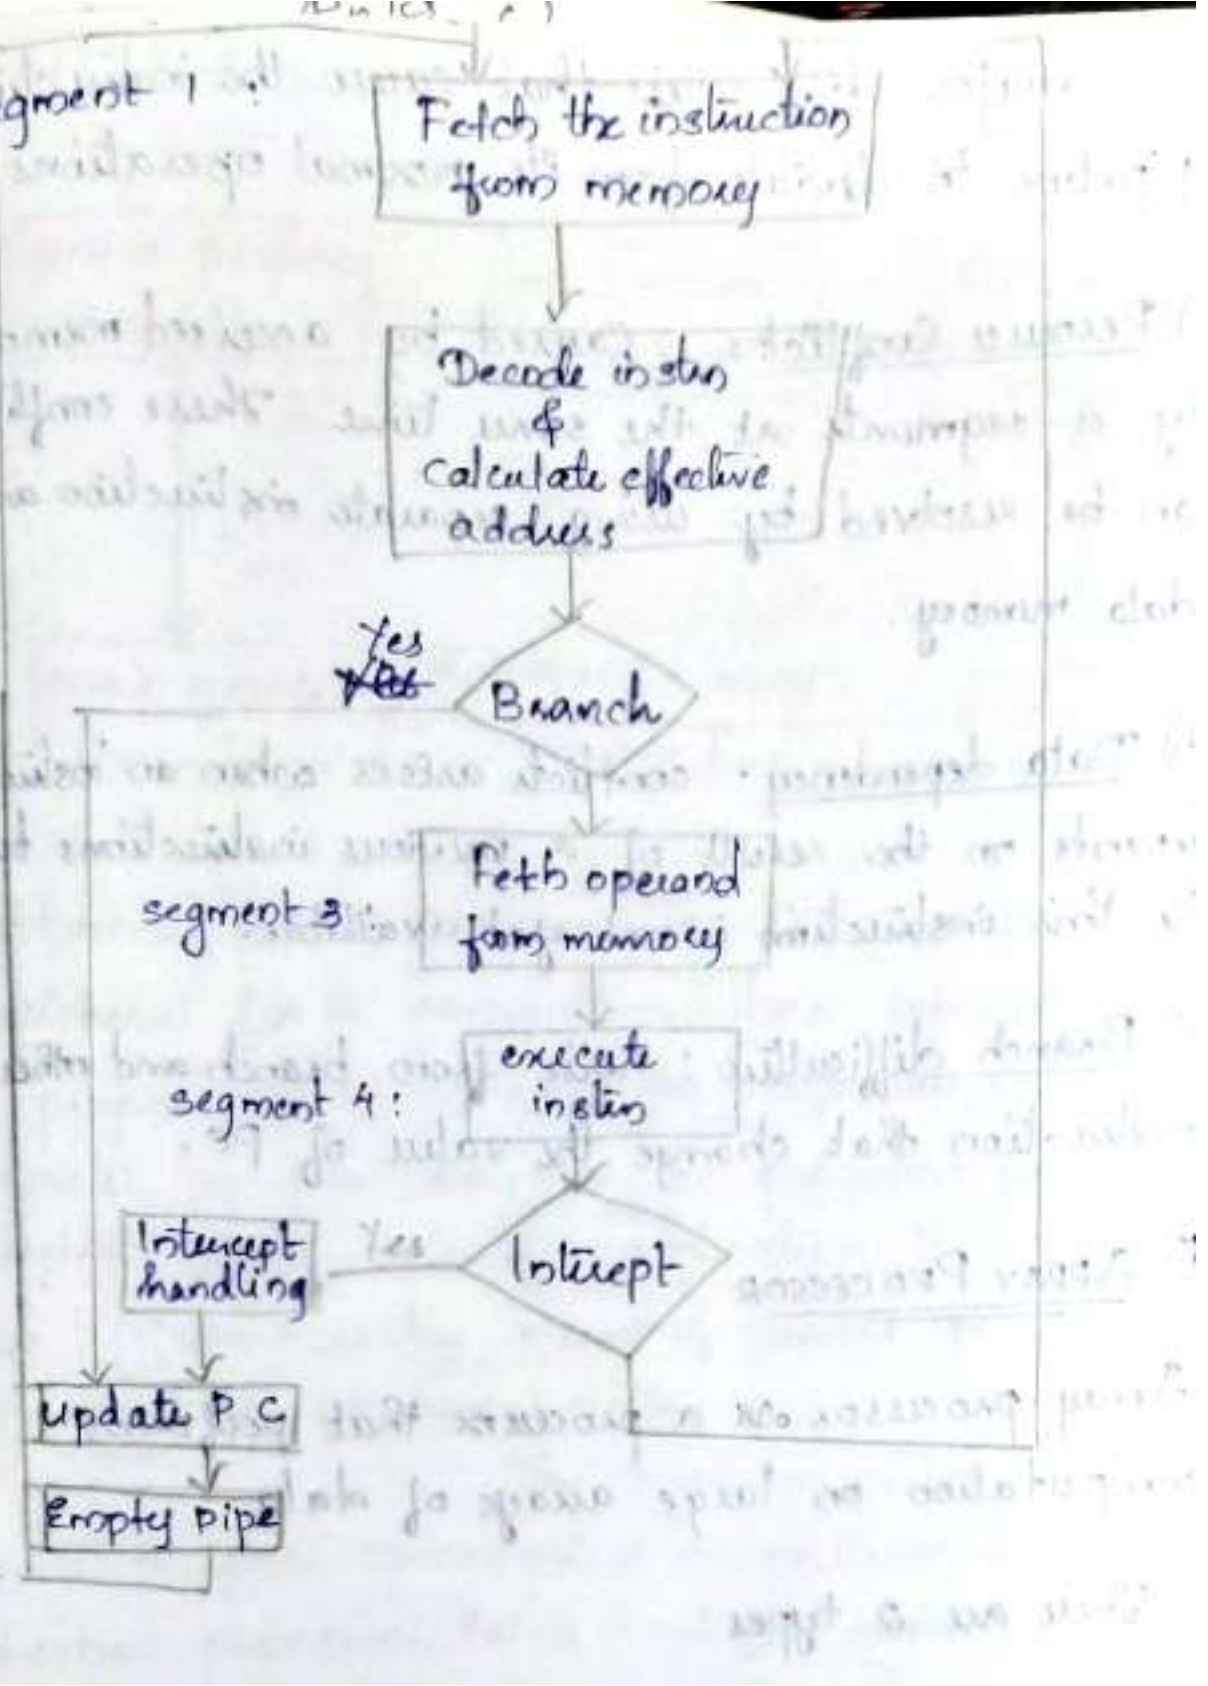 gment 1 :
Fetch the instruction
from memory
Decode instrn
&
calculate effective
address
Yes
Branch
segment 3:
Feth operand
from memory
segment 4:
execute
instrn
Yes
Interrept
Interrept
handling
update P C
Empty pipe